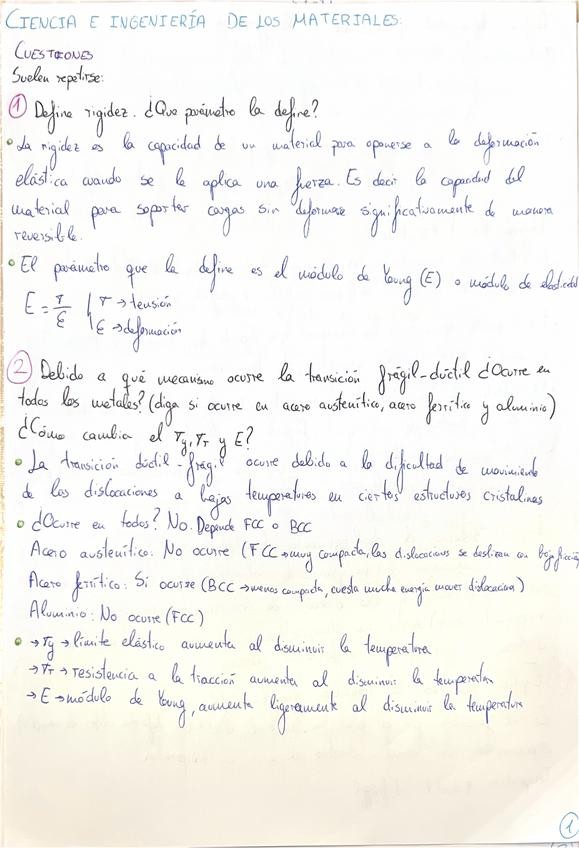 CIENCIA E INGENIERÍA DE LOS MATERIALES:
CUESTIONES
Suelen repetirse:
① Define rigidez. ¿Que parámetro la define?
• La rigidez es la capacidad de un material para oponerse a la deformación
elástica cuando se le aplica una fuerza. Es decir la capacidad del
material para soportar cargas sin deformarse significativamente de manera
reversible.
• El parámetro que la define es el módulo de Young (E) o módulo de elasticidad
E = σ/ε { σ → tensión
ε → deformación
② Debido a qué mecanismo ocurre la transición frágil-dúctil ¿Ocurre en
todos los metales? (diga si ocurre en acero austenítico, acero ferrítico y aluminio)
¿Cómo cambia el σy, σT y E?
• La transición dúctil-frágil ocurre debido a la dificultad de movimiento
de las dislocaciones a bajas temperaturas en ciertas estructuras cristalinas
• ¿Ocurre en todos? No. Depende FCC o BCC
Acero austenítico: No ocurre (FCC → muy compacta, las dislocaciones se deslizan con baja fricción
Acero ferrítico: Si ocurre (BCC → menos compacta, cuesta mucha energía mover dislocaciones)
Aluminio: No ocurre (FCC)
• → σy → límite elástico aumenta al disminuir la temperatura
→ σT → resistencia a la tracción aumenta al disminuir la temperatura
→ E → módulo de Young, aumenta ligeramente al disminuir la temperatura
1